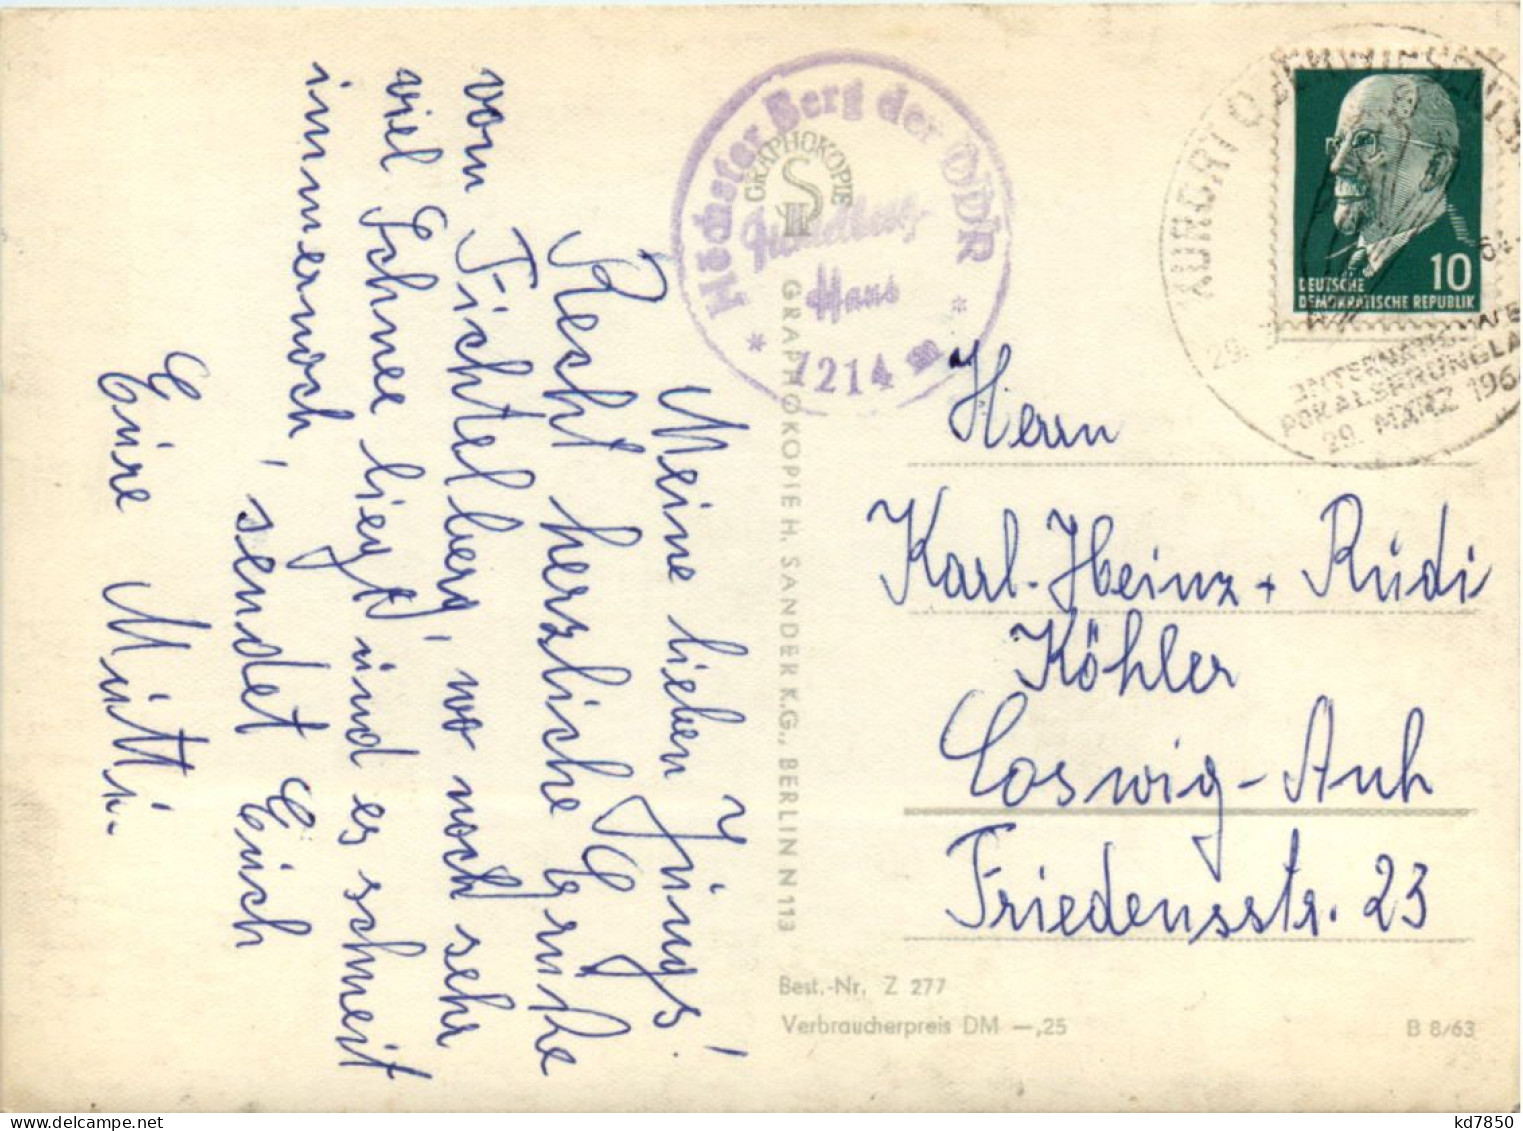 Meine lieben Jungs!
Recht herzliche Grüße
vom Fichtelberg, wo noch sehr
viel Schnee liegt und es schneit
immernoch, sendet Euch
Eure Mutti.
Höchster Berg der DDR
Fichtelberg-
Haus
* 1214 m *
GRAPHOKOPIE
H S
GRAPHOKOPIE H. SANDER K.G., BERLIN N 113
KURORT OBERWIESENTHAL
INTERNATIONALE
POKALSPRUNGLA
29. MÄRZ 196
10
DEUTSCHE
DEMOKRATISCHE REPUBLIK
Herrn
Karl-Heinz + Rudi
Köhler
Coswig-Anh
Friedensstr. 23
Best.-Nr. Z 277
Verbraucherpreis DM —,25
B 8/63
kd7850